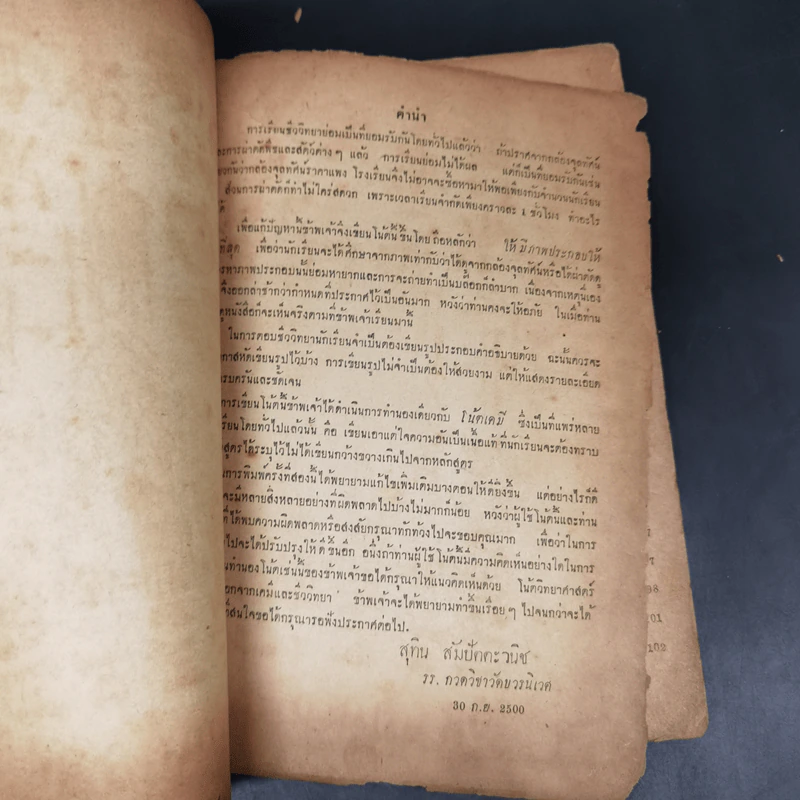 คำนำ
การเรียนชีววิทยาย่อมเป็นที่ยอมรับกันโดยทั่วไปแล้วว่า ถ้าปราศจากกล้องจุลทัศน์
และการผ่าตัดพืชและสัตว์ต่างๆ แล้ว การเรียนย่อมไม่ได้ผล แต่ก็เป็นที่ยอมรับกันเช่น
กันว่ากล้องจุลทัศน์ราคาแพง โรงเรียนจึงไม่อาจจะซื้อหามาให้พอเพียงกับจำนวนนักเรียน
ส่วนการผ่าตัดก็ทำไม่ใคร่สดวก เพราะเวลาเรียนจำกัดเพียงคราวละ 1 ชั่วโมง ทำอะไร
เพื่อแก้ปัญหานี้ข้าพเจ้าจึงเขียนโน้ตนี้ขึ้นโดยถือหลักว่า ให้มีภาพประกอบให้
ที่สุด เพื่อว่านักเรียนจะได้ศึกษาจากภาพเท่ากับว่าได้ดูจากกล้องจุลทัศน์หรือได้ผ่าตัดดู
หาภาพประกอบนั้นย่อมหายากและการจะถ่ายทำเป็นบล็อกก็ลำบาก เนื่องจากเหตุนี้เอง
จึงออกล่าช้ากว่ากำหนดที่ประกาศไว้เป็นอันมาก หวังว่าท่านคงจะให้อภัย ในเมื่อท่าน
หนังสือก็จะเห็นจริงตามที่ข้าพเจ้าเรียนมานี้
ในการตอบชีววิทยานักเรียนจำเป็นต้องเขียนรูปประกอบคำอธิบายด้วย ฉะนั้นควรจะ
หัดเขียนรูปไว้บ้าง การเขียนรูปไม่จำเป็นต้องให้สวยงาม แต่ให้แสดงรายละเอียด
ครบครันและชัดเจน
การเขียนโน้ตนี้ข้าพเจ้าได้ดำเนินการทำนองเดียวกับ โน้ตเคมี ซึ่งเป็นที่แพร่หลาย
เรียนโดยทั่วไปแล้วนั้น คือ เขียนเอาแต่ใจความอันเป็นเนื้อแท้ที่นักเรียนจะต้องทราบ
สูตรได้ระบุไว้ไม่ได้เขียนกว้างขวางเกินไปจากหลักสูตร
ในการพิมพ์ครั้งที่สองนี้ได้พยายามแก้ไขเพิ่มเติมบางตอนให้ดียิ่งขึ้น แต่อย่างไรก็ดี
จะมีหลายสิ่งหลายอย่างที่ผิดพลาดไปบ้างไม่มากก็น้อย หวังว่าผู้ใช้โน้ตนี้และท่าน
ที่ได้พบความผิดพลาดหรือสงสัยกรุณาทักท้วงไปจะขอบคุณมาก เพื่อว่าในการ
ไปจะได้ปรับปรุงให้ดีขึ้นอีก อนึ่งถ้าท่านผู้ใช้โน้ตนี้มีความคิดเห็นอย่างใดในการ
ทำนองโน้ตเช่นนี้ของข้าพเจ้าขอได้กรุณาให้แนวคิดเห็นด้วย โน้ตวิทยาศาสตร์
นอกจากเคมีและชีววิทยา ข้าพเจ้าจะได้พยายามทำขึ้นเรื่อยๆ ไปจนกว่าจะได้
สนใจขอได้กรุณารอฟังประกาศต่อไป.
สุทิน สัมปัตตะวนิช
รร. กวดวิชาวัดบวรนิเวศ
30 ก.ย. 2500
98
101
102